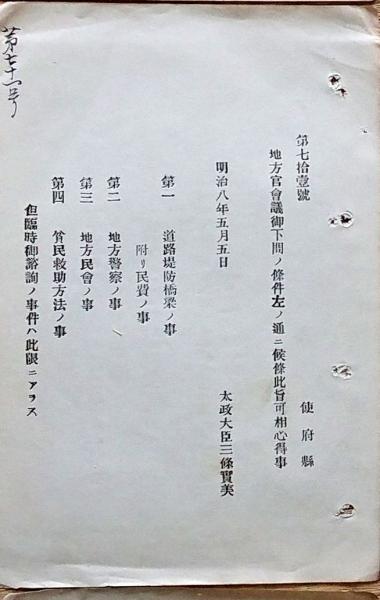 第七十一号
第七拾壹號
使府縣
地方官會議御下問ノ條件左ノ通ニ候條此旨可相心得事
明治八年五月五日
太政大臣三條實美
第一 道路堤防橋梁ノ事
附リ民費ノ事
第二 地方警察ノ事
第三 地方民會ノ事
第四 貧民救助方法ノ事
但臨時御諮詢ノ事件ハ此限ニアラス